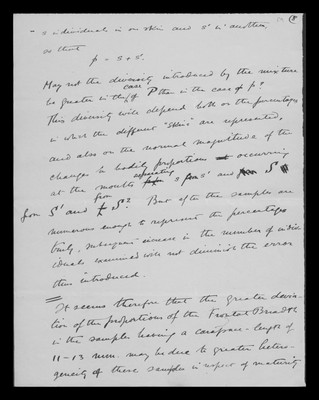 " s individuals in one skin and s' in another,
so that
p = s + s'.
May not the diversity introduced by the mixture
be greater in the case of P than in the case of p?
This diversity will depend both on the percentages
in which the different "skins" are represented,
and also on the normal magnitude of the
changes in bodily proportions occurring
at the moults separating s from s' and S
from S' and S². But after the samples are
numerous enough to represent the percentages
truly, subsequent increase in the number of indiv-
iduals examined will not diminish the error
thus introduced.
It seems therefore that the greater devia-
tion of the proportions of the Frontal Breadth
in the samples having a carapace-length of
11-13 mm. may be due to greater hetero-
geneity of these samples in respect of maturity